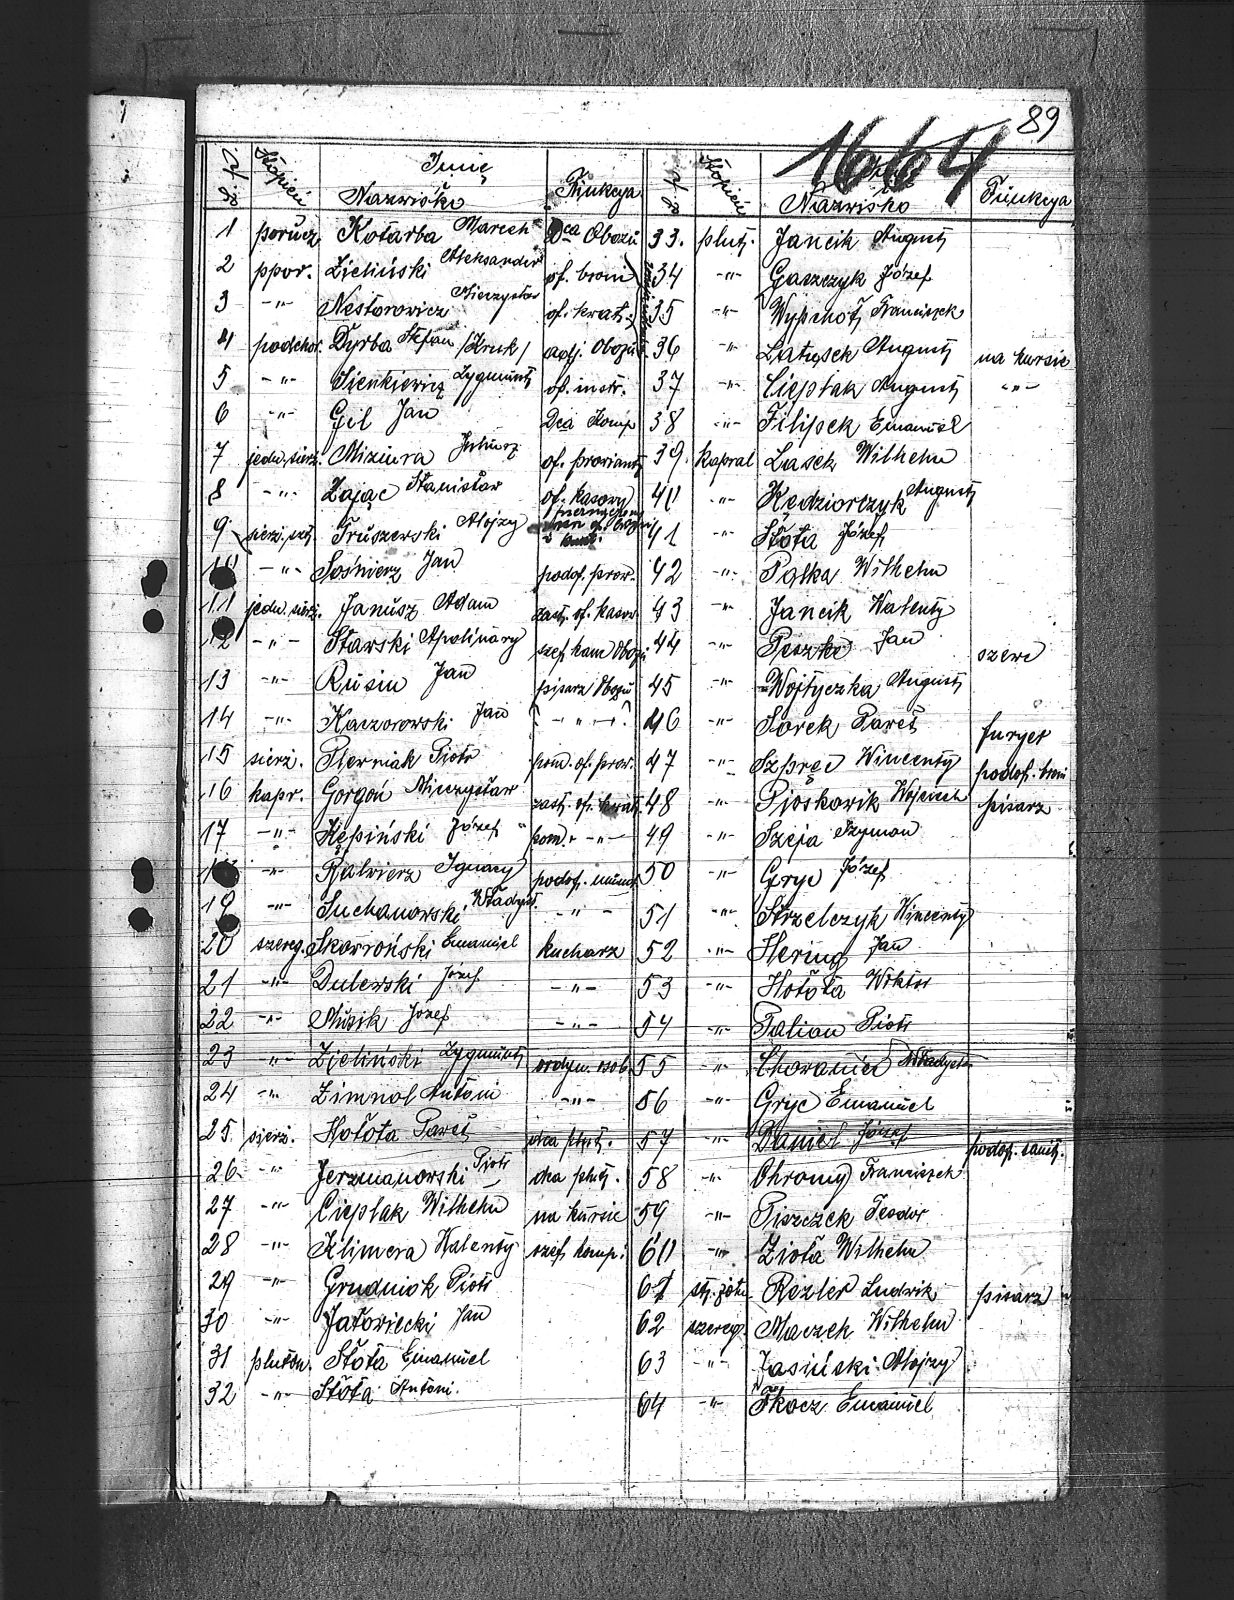 89
1664
L. p. Stopień Imię Nazwisko Funkcya
1 porucz. Kotarba Marceli Dca Obozu
2 ppor. Zieliński Aleksander of. broni
3 -"- Nestorowicz Mieczysław of. kwat.
4 podchor. Dyrba Stefan /Kruk/ adj. Obozu
5 -"- Sienkiewicz Zygmunt of. instr.
6 -"- Gil Jan Dca Komp
7 jedn. sierż. Miziura Juliusz of. prowiant
8 -"- Zając Stanisław of. kasowy
9 sierż. szt. Truszewski Alojzy
10 -"- Sośnierz Jan podof. prow.
11 jedn. sierż. Janusz Adam zast. of. kasow.
12 -"- Starski Apolinary szef kanc Obozu
13 -"- Rusin Jan pisarz Obozu
14 -"- Kaczorowski Jan -"-
15 sierż. Pierniak Piotr pom. of. prow.
16 kapr. Gorgoń Mieczysław zast. of. kwat.
17 -"- Kępiński Józef pom. -"-
18 -"- Balwierz Ignacy podof. mund.
19 -"- Suchanowski Władysł. -"-
20 szereg. Skowroński Emanuel kucharz
21 -"- Dulewski Józef -"-
22 -"- Muzik Józef -"-
23 -"- Zieliński Zygmunt ordyn. osob.
24 -"- Zimnol Antoni -"-
25 sierż. Hołota Paweł dca plut.
26 -"- Jerzmanowski Piotr dca plut.
27 -"- Cieplak Wilhelm na kursie
28 -"- Klimera Walenty szef komp.
29 -"- Grudniok Piotr
30 -"- Jałowiecki Jan
31 pluton. Słota Emanuel
32 -"- Słota Antoni.
L. p. Stopień Nazwisko Funkcya
33. plut. Jancik August
34 -"- Gaszczyk Józef
35 -"- Wypchoł Franciszek
36 -"- Latusek August na kursie
37 -"- Cieplak August -"-
38 -"- Filipek Emanuel
39. kapral Lasek Wilhelm
40 -"- Kędziorczyk August
41 -"- Słota Józef
42 -"- Palka Wilhelm
43 -"- Jancik Walenty
44 -"- Peszke Jan szewc
45 -"- Wojtyczka August
46 -"- Sorek Paweł furyer
47 -"- Szpręc Wincenty podof. broni
48 -"- Pioskowik Wojciech pisarz
49 -"- Szeja Szymon
50 -"- Gryc Józef
51 -"- Strzelczyk Wincenty
52 -"- Hering Jan
53 -"- Hołota Wiktor
54 -"- Palion Piotr
55 -"- Chowaniec Władysław
56 -"- Gryc Emanuel
57 -"- Daniel Józef podof. sanit.
58 -"- Chromy Franciszek
59 -"- Piszczek Teodor
60 -"- Zioła Wilhelm
61 st. żołn. Rezler Ludwik pisarz
62 szereg. Maczek Wilhelm
63 -"- Jasiński Alojzy
64 -"- Tkocz Emanuel